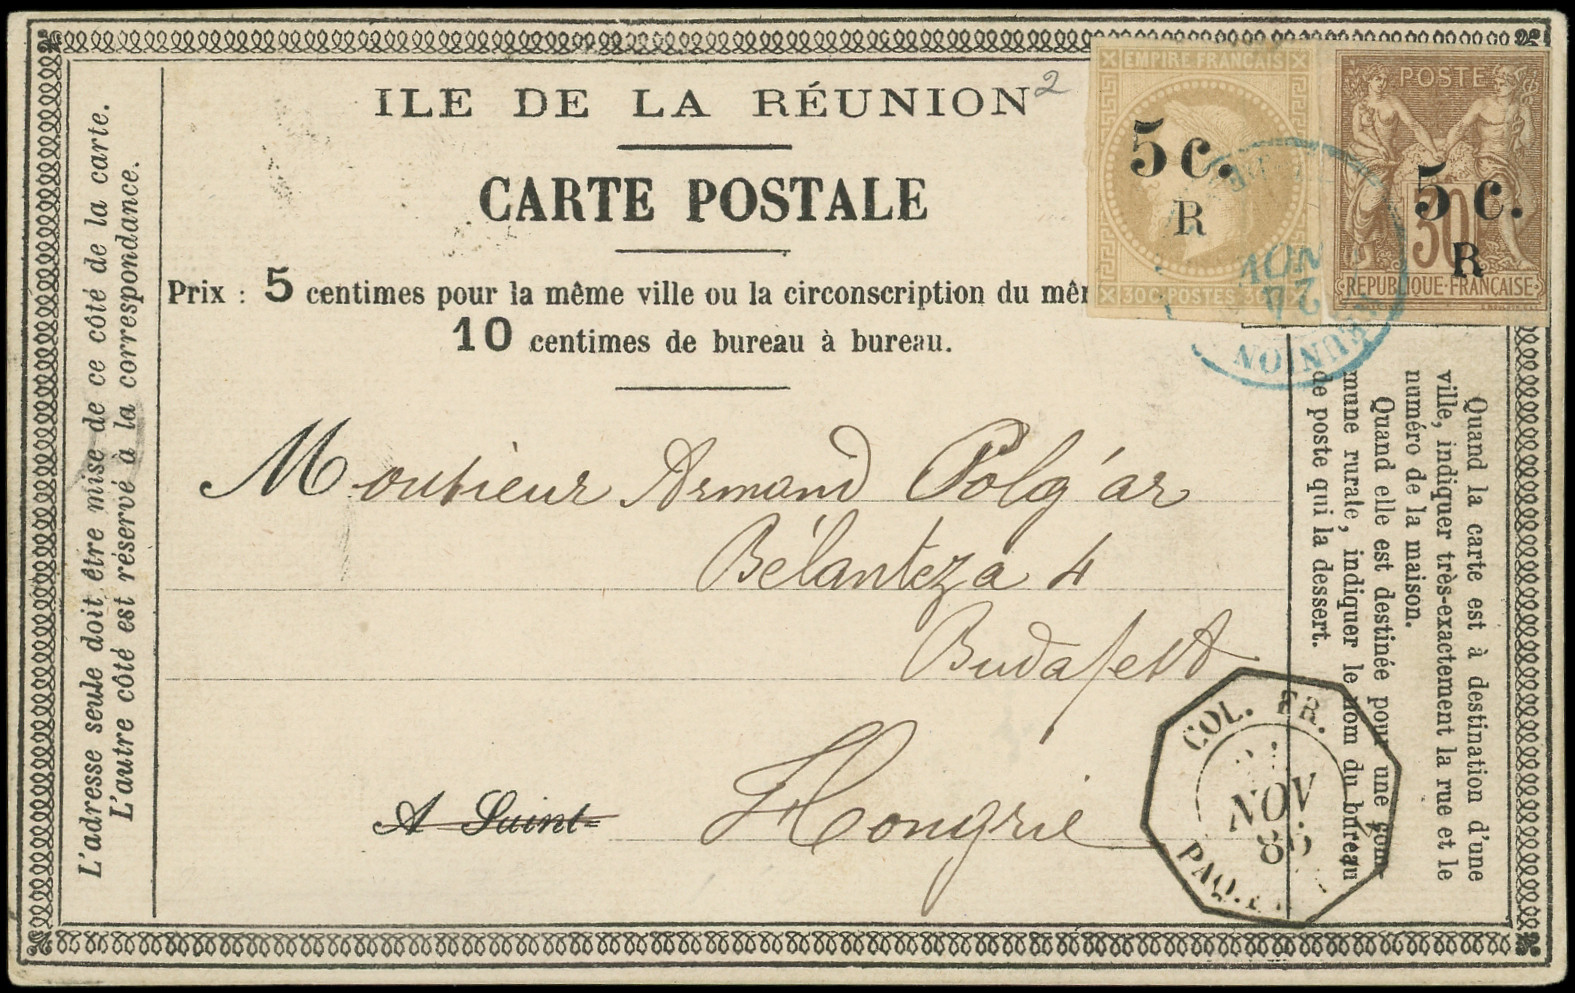 ILE DE LA RÉUNION
2
CARTE POSTALE
Prix : 5 centimes pour la même ville ou la circonscription du mêm
10 centimes de bureau à bureau.
L'adresse seule doit être mise de ce côté de la carte.
L'autre côté est réservé à la correspondance.
EMPIRE FRANÇAIS
5 c.
R
30 C. POSTES 30
POSTE
5 c.
30
R
REPUBLIQUE FRANÇAISE
NOV
RÉUNION
Monsieur Armand Polgár
Bélanteza 4
Budapest
Hongrie
A Saint-
COL. FR.
NOV
PAQ. FR
Quand la carte est à destination d'une
ville, indiquer très-exactement la rue et le
numéro de la maison.
Quand elle est destinée pour une com-
mune rurale, indiquer le nom du bureau
de poste qui la dessert.